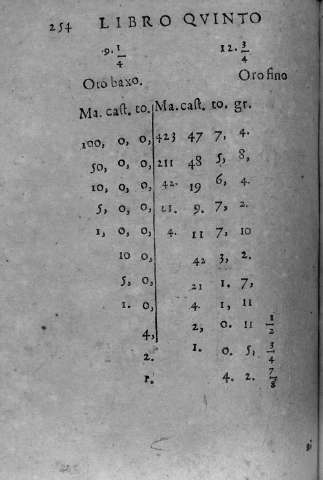 254 LIBRO QVINTO
9. 1/4 12. 3/4
Oro baxo. Oro fino
Ma. cast. to. Ma. cast. to. gr.
100, 0, 0, 423 47 7, 4.
50, 0, 0, 211 48 5, 8,
10, 0, 0, 42. 19 6, 4.
5, 0, 0, 21. 9. 7, 2.
1, 0, 0, 4. 11 7, 10
10 0, 42 3, 2.
5, 0, 21 1. 7,
1. 0, 4. 1, 11
4, 2, 0. 11 1/2
2. 1. 0. 5, 3/4
1. 4. 2. 7/8